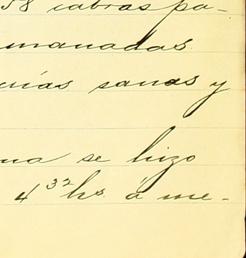 58 cabras pa-
manadas
crías sanas y
na se hizo
4 32 hs. á me-